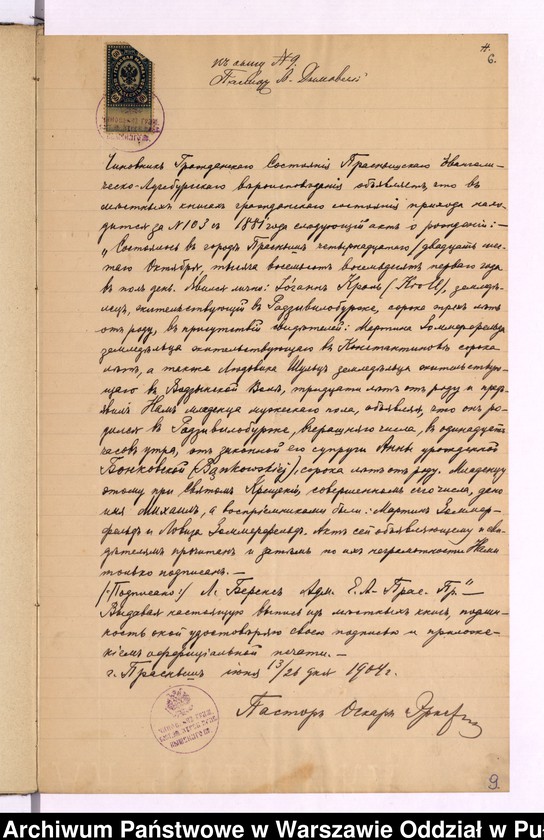 къ акту № 9
4.
6.
Чиновникъ Гражданскаго Состоянія Праснышскаго Эвангели-
ческо-Аугсбургскаго вѣроисповѣданія объявляетъ, что въ
мѣстныхъ книгахъ гражданскаго состоянія прихода нахо-
дится за № 103 съ 1881 года слѣдующій актъ о рожденіи: —
„Состоялось въ городѣ Праснышѣ четырнадцатаго /двадцать шес-
таго Октября, тысяча восемьсотъ восемьдесятъ перваго года
въ полдень. Явился лично: Іоганнъ Кроль (Kroll), земледѣ-
лецъ, жительствующій въ Радзивилобуркѣ, сорока трехъ лѣтъ
отъ роду, въ присутствіи свидѣтелей: Мартина Зоммерфельда
земледѣльца жительствующаго въ Константиновѣ сорока
лѣтъ, а также Людвика Шульцъ земледѣльца жительствую-
щаго въ Волѣ, тридцати лѣтъ отъ роду и предъ-
явилъ Намъ младенца мужескаго пола, объявляя, что онъ ро-
дился въ Радзивилобуркѣ, вчерашняго числа, въ одинадцать
часовъ утра, отъ законной его супруги Анны урожденной
Бонковской (Bąnkowskiej), сорока лѣтъ отъ роду. Младенцу
этому при Святомъ Крещеніи, совершенномъ сего числа, дано
имя Михаилъ, а воспріемниками были: Мартинъ Зоммер-
фельдъ и Ловиза Зоммерфельдъ. Актъ сей объявляющему и сви-
дѣтелямъ прочитанъ и затѣмъ по ихъ неграмотности Нами
только подписанъ. —
(:Подписано:) Л. Беренсъ Адм. Е. А. Прас. Пр." —
Выдавая настоящую выпись изъ мѣстныхъ книгъ, подлин-
ность оной удостовѣряю своею подписью и приложе-
ніемъ оффиціальной печати. —
г. Праснышъ іюня 13/26 дня 1904 г.
Пасторъ Оскаръ
9
Archiwum Państwowe w Warszawie Oddział w Pu